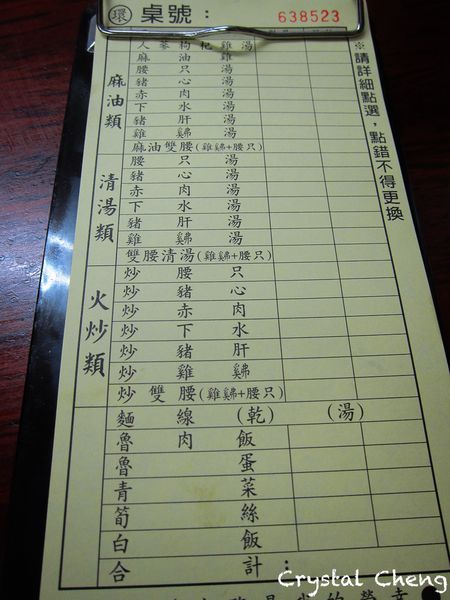 環 桌號： 638523
人蔘枸杞雞湯
麻油雞
腰只湯
豬心湯
赤肉湯
下水湯
豬肝湯
雞鵤湯
麻油雙腰(雞鵤+腰只)
麻油類
腰只湯
豬心湯
赤肉湯
下水湯
豬肝湯
雞鵤湯
雙腰清湯(雞鵤+腰只)
清湯類
炒腰只
炒豬心
炒赤肉
炒下水
炒豬肝
炒雞鵤
炒雙腰(雞鵤+腰只)
火炒類
麵線(乾) (湯)
魯肉飯
魯蛋
青菜
筍絲
白飯
合計：
※請詳細點選，點錯不得更換
Crystal Cheng